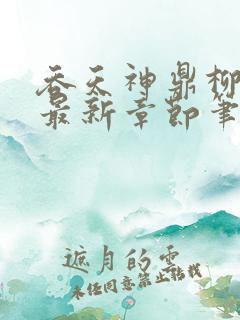 吞天神鼎柳
最新章节笔
遮月的云
未经同意禁止转载